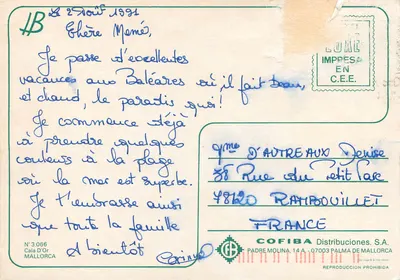 le 2 Août 1991
Chère Mémé,
Je passe d'excellentes
vacances aux Baléares où il fait beau,
et chaud, le paradis quoi!
Je commence déjà
à prendre quelques
couleurs à la plage
où la mer est superbe.
Je t'embrasse ainsi
que toute la famille
A bientôt
Mme D'AUTREAUX Denise
38 Rue du Petit Parc
78120 RAMBOUILLET
FRANCE
IMPRESA
EN
C.E.E.
N.º 3.066
Cala D'Or
MALLORCA
COFIBA Distribuciones, S.A.
PADRE MOLINA, 14 A. - 07003 PALMA DE MALLORCA
REPRODUCCION PROHIBIDA